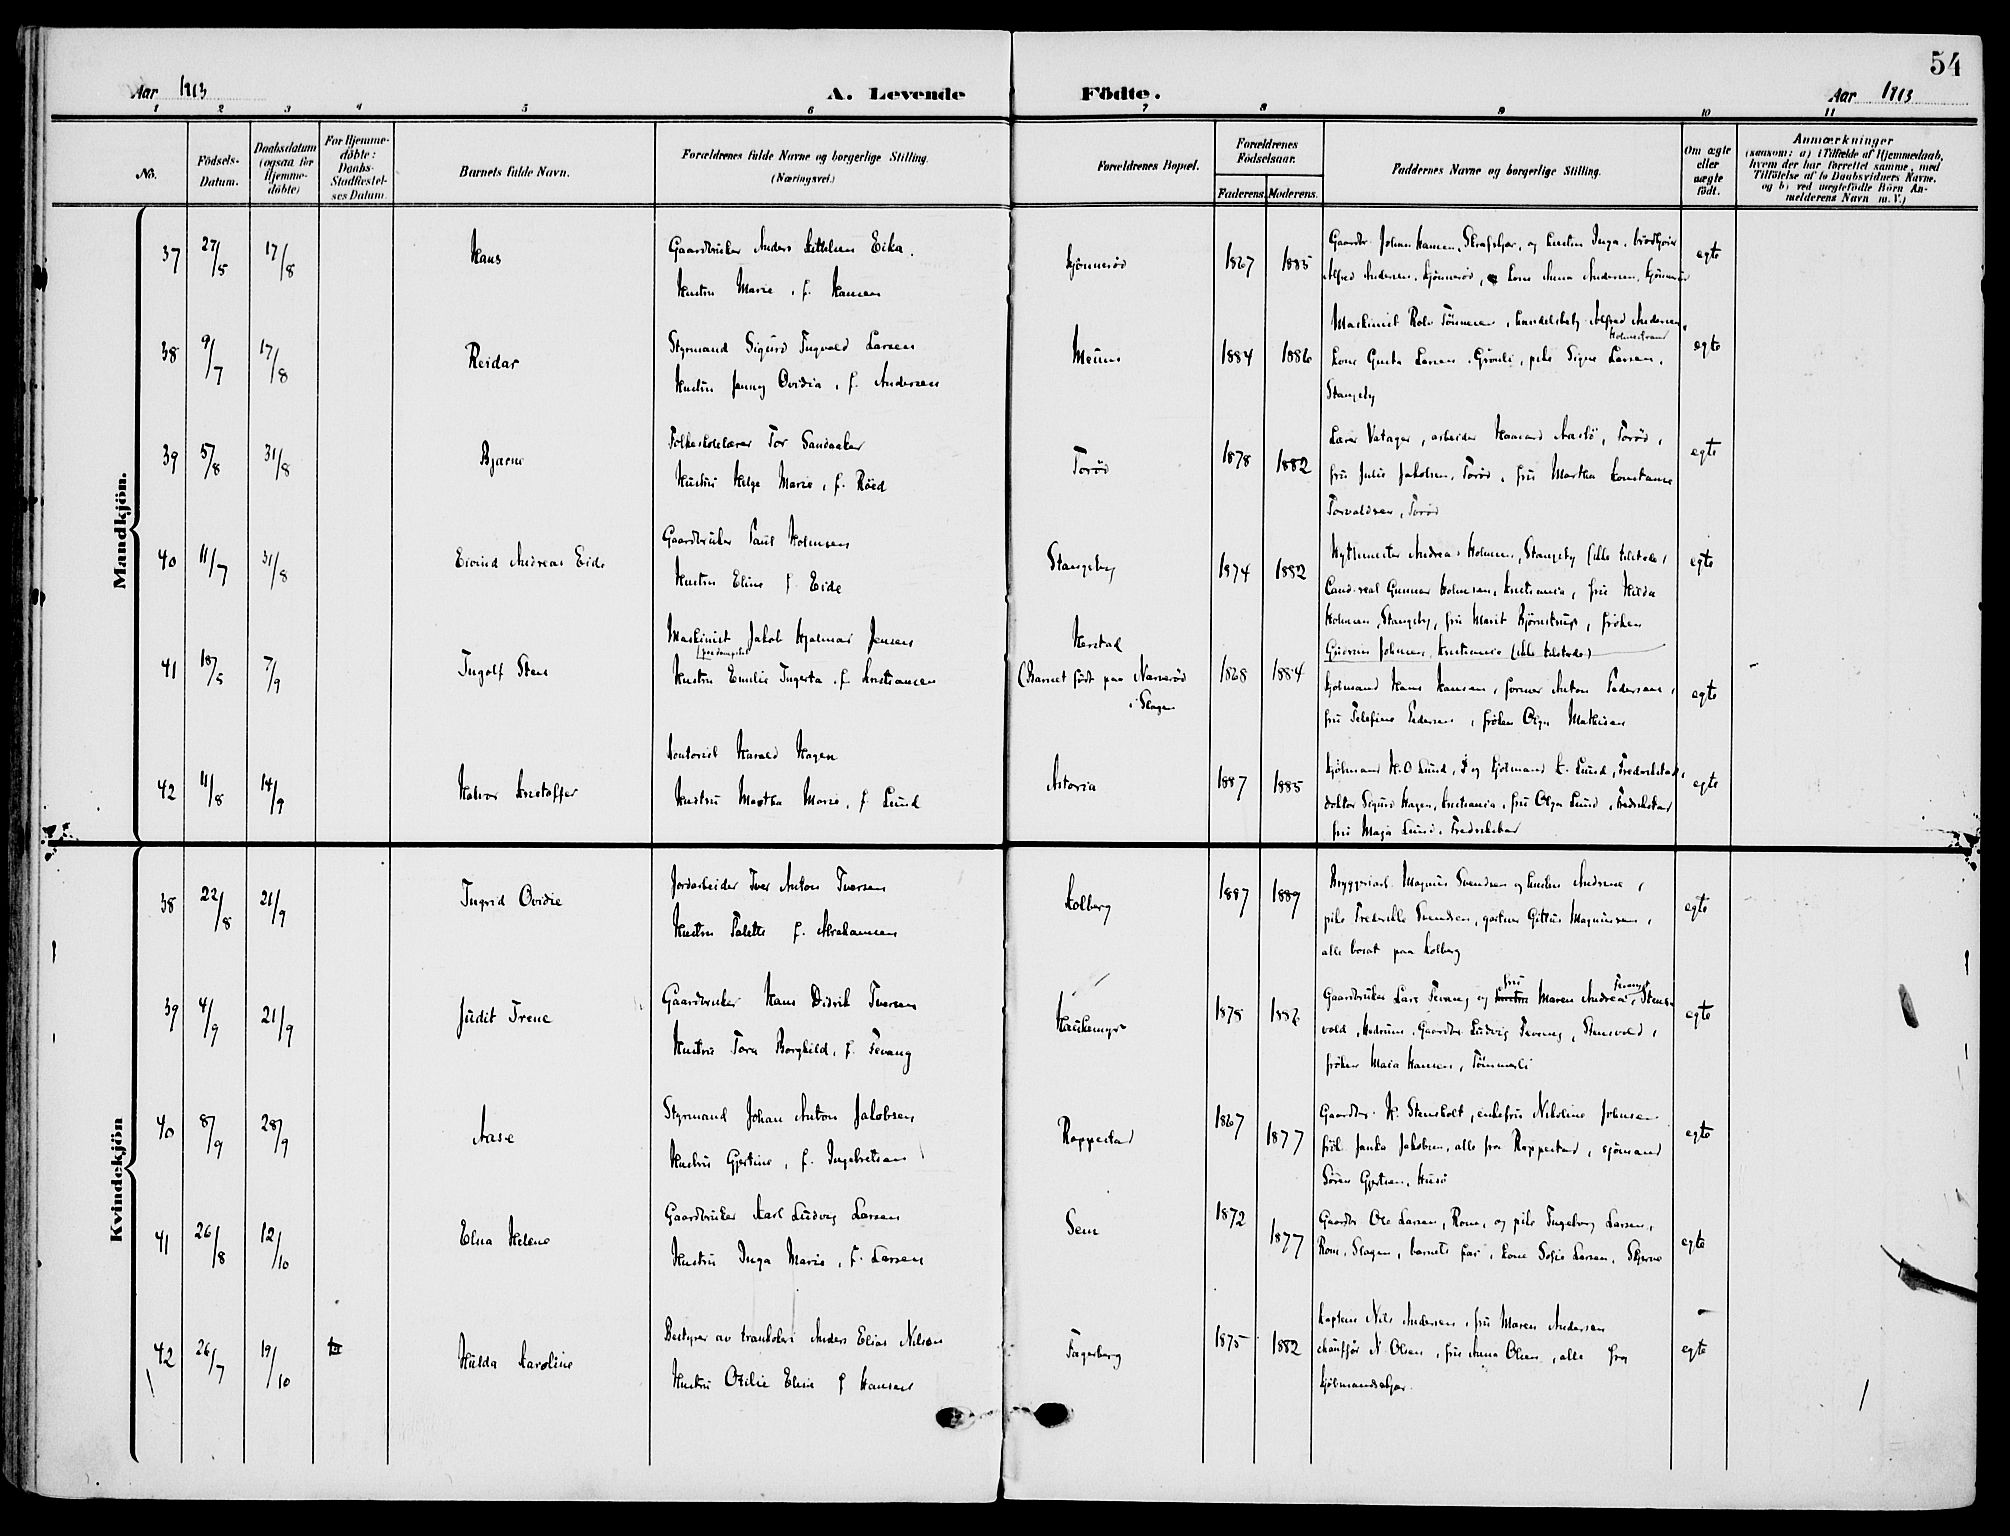 54
Aar 1913 A. Levende Födte. Aar 1913
1 2 3 4 5 6 7 8 9 10 11
No. Födsels-Datum. Daabsdatum (ogsaa for Hjemmedöbte) For Hjemmedöbte: Daabs-Stadfæstelses Datum. Barnets fulde Navn. Forældrenes fulde Navne og borgerlige Stilling. (Næringsvei.) Forældrenes Bopæl. Forældrenes Födselsaar. Faderens. Moderens. Faddernes Navne og borgerlige Stilling. Om ægte eller uægte født. Anmærkninger (saasom: a) i Tilfælde af Hjemmedaab, hvem der har forrettet samme, med Tilföielse af to Daabsvidners Navne, og b) ved uægtefödte Börn Anmelderens Navn m. V.)
Mandkjön.
37 27/5 17/8 Hans Gaardbruker Anders Eika. 1867 1885 Gaardbr. Johan Hansen, og hustru Inga, egte
Hustru Marie, f. Hansen Alfred Andersen, Anna Andersen,
38 9/7 17/8 Reidar Styrmand Sigurd Ingvald Larsen Meum 1884 1886 Maskinist Rolv Alfred Andersen, egte
Hustru Jenny Ovidia, f. Andersen Holmestrand
Larsen, pike Signe Larsen,
Stangeby
39 5/8 31/8 Bjarne Folkeskolelærer Tor Sandaaker Torød 1878 1882 Lærer Vatager, arbeider Torød, egte
Hustru Helga Marie, f. Röed fru Julie Jakobsen, Torød, fru Martha Konstanse
Torvaldsen, Torød
40 11/7 31/8 Eivind Andreas Eide Gaardbruker Paul Holmsen Stangeby 1874 1882 Rytmester Andreas Holmsen, Stangeby (ikke tilstede), egte
Hustru Elise f. Eide Cand. real Gunnar Holmsen, Kristiania, fru Hilda
Holmsen, Stangeby, fru Marit Björnstrup, fröken
Gudrun Johnsen, Kristiania (ikke tilstede)
41 18/5 7/9 Ingolf Sten Maskinist Jakob Hjalmar Jensen Herstad 1884 Hans Hansen, former Anton Pedersen, egte
Hustru Emilie Ingerta f. Kristiansen (Barnet født paa Narverød i Slagen fru Pedersen, fröken Olga Mathisen
42 11/8 14/9 Halvor Kristoffer Kontorist Harald Hagen Astoria 1887 1885 Kjøbmand H. O. Lund, kjøbmand Lund, Fredrikstad, egte
Hustru Martha Marie, f. Lund doktor Sigurd Hagen, Kristiania, fru Olga Lund, Fredrikstad
fru Maja Lund, Fredrikstad
Kvindekjön
38 22/8 21/9 Ingrid Ovidie Jordarbeider Iver Anton Iversen Kolberg 1887 1889 Magnus Svendsen og hustru Andrine, egte
Hustru f. Abrahamsen pike Fredrikke Svendsen, gartner Magnussen,
alle bosat paa Kolberg
39 4/9 21/9 Judit Irene Gaardbruker Hans Didrik Iversen Haukemyr 1878 Gaardbruker Lars Fevang og fru Maren Andrea Fevang, Stens- egte
Hustru Tora Borghild, f. Fevang vold, Hedrum, Gaardbr. Ludvig Fevang, Stensvold,
fröken Maia Hansen, Tömmerli
40 8/9 28/9 Aase Styrmand Johan Anton Jakobsen Roppestad 1867 1877 Gaardbr. H. Stensholt, enkefru Nikoline Johnsen egte
Hustru Gjertine, f. Ingebretsen frök. Janka Jakobsen, alle fra Roppestad, sjömand
Sören Gjertsen, Husö
41 26/8 12/10 Elna Helene Gaardbruker Karl Ludvig Larsen Sem 1872 1877 Gaardbr Ole Larsen, Rom, og pike Ingeborg Larsen, egte
Hustru Inga Marie, f. Larsen Rom, Slagen, barnets far, kone Sofie Larsen,
42 26/7 19/10 Hulda Karoline Bestyrer av trankokeri Anders Elias Nilsen Fagerborg 1875 1882 Kaptein Nils Andersen, fru Maren Andersen egte
Hustru Otilie Elise f Hansen chauffør N. Olsen, fru Anna Olsen, alle fra